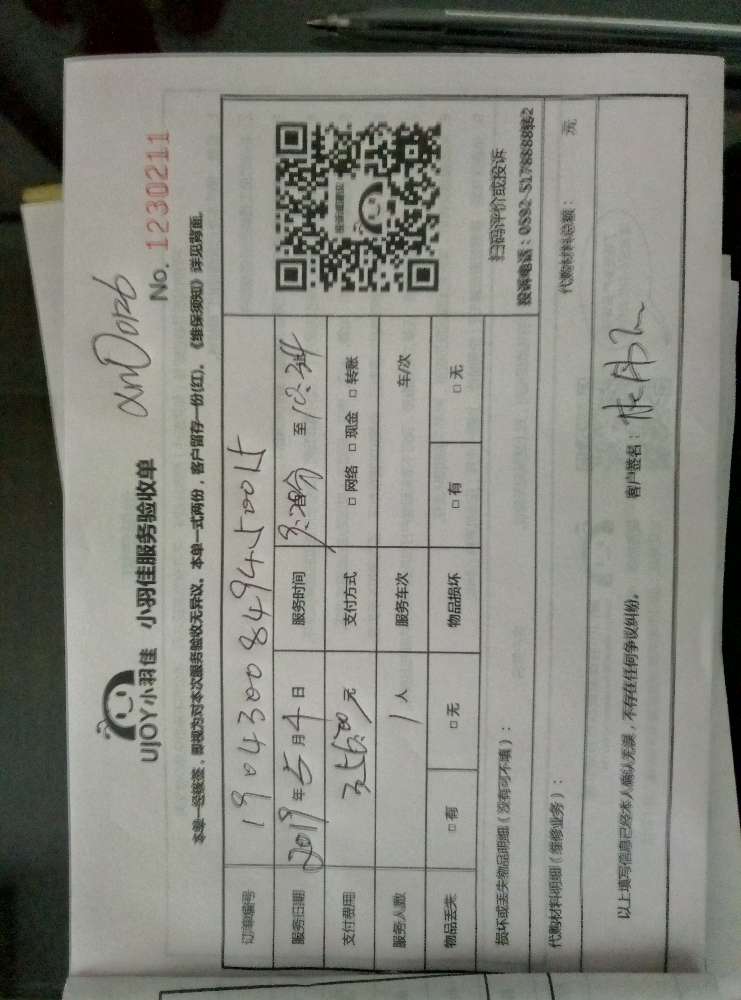 UJOY小羽佳 小羽佳服务验收单
No. 1230211
本单一经接签，即视为对本次服务验收无异议。本单一式两份，客户留存一份(红)。《维保须知》详见背面。
订单编号
服务日期 2019 年 5 月 4 日 服务时间 至 12:34
支付费用 356.00 元 支付方式 □ 网络 □ 现金 □ 转账
服务人数 1 人 服务车次 车/次
物品丢失 □ 有 □ 无 物品损坏 □ 有 □ 无
扫码评价或投诉
投诉电话：0592-5178888转2
损坏或丢失物品明细（没有可不填）：
代购材料明细（维修业务）： 代购材料总额： 元
以上填写信息已经本人确认无误，不存在任何争议纠纷。 客户签名：